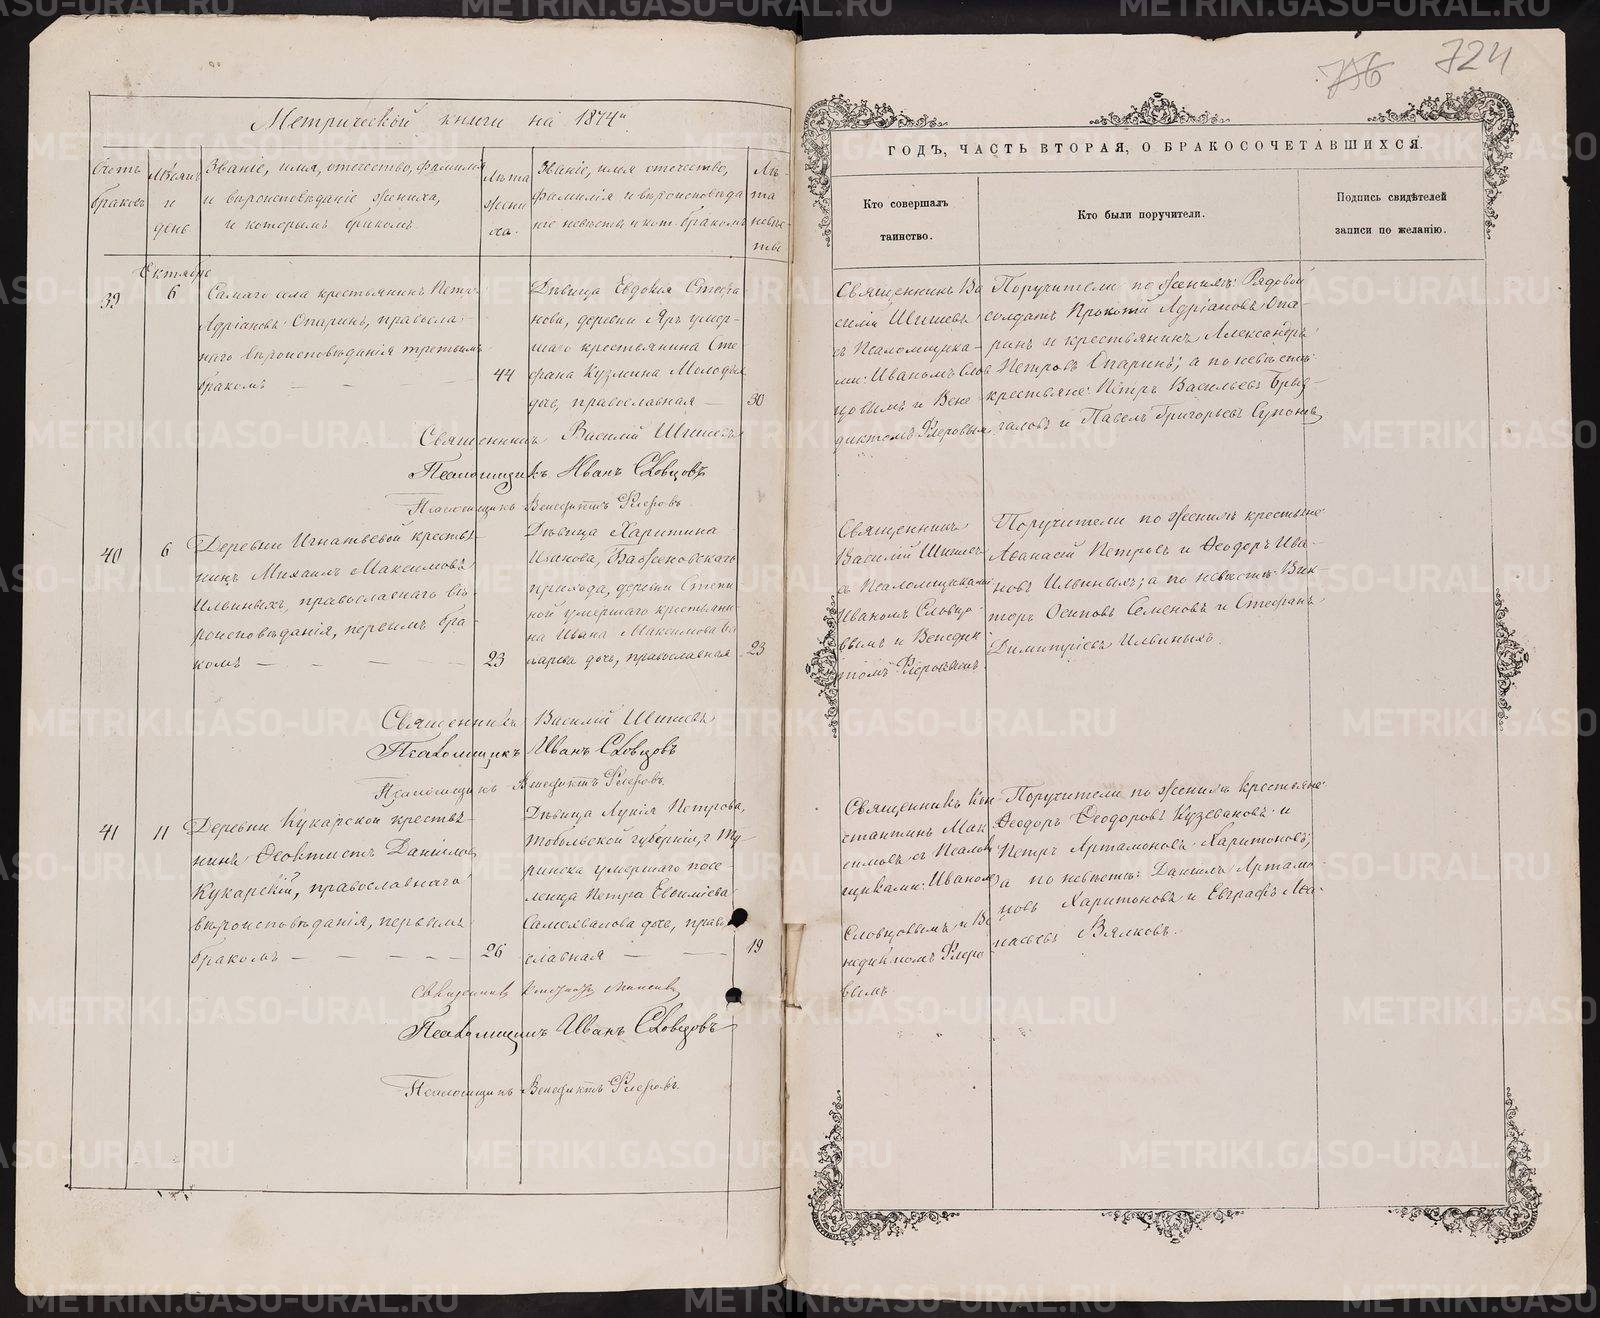 Метрической книги на 1874й
Счетъ браковъ
Мѣсяцъ и день
Званіе, имя, отечество, фамилія
и вѣроисповѣданіе жениха,
и которымъ бракомъ
Лѣта жениха.
Званіе, имя отечество,
фамилія и вѣроисповѣда
ніе невѣсты, и кот. бракомъ
Лѣта невѣсты
Октябрь
39
6
Самаго села крестьянинъ Петръ
Адріановъ Опаринъ, правосла
наго вѣроисповѣданія третьимъ
бракомъ
44
Дѣвица Евдокія Стефа
нова, деревни Яръ умер-
шаго крестьянина Сте
фана Кузмина Молодых
дочь, православная
30
Священникъ Василій Шишевъ
Псаломщикъ Иванъ Словцовъ
Псаломщикъ Венедиктъ Флеровъ.
40
6
Деревни Игнатьевой кресть
нинъ Михаилъ Максимовъ
Ильиныхъ, православнаго вѣ
роисповѣданія, первымъ бра-
комъ
23
Дѣвица Харитина
Иванова,
прихода, деревни
ной умершаго крестьяни-
на Ивана Максимова
дочь, православная
23
Священникъ Василій Шишевъ
Псаломщикъ Иванъ Словцовъ
Псаломщикъ Венедиктъ Флеровъ.
41
11
Деревни Кукарской кресть
нинъ Ѳеоктистъ Даніиловъ
Кукарскій, православнаго
вѣроисповѣданія, первымъ
бракомъ
26
Дѣвица Лукія Петрова,
Тобольской губерніи, г. Ту-
ринска умершаго посе-
ленца Петра Евѳиміева
Самохвалова дочь, право
славная
19
Псаломщикъ Иванъ Словцовъ
Псаломщикъ Венедиктъ Флеровъ.
756
724
ГОДЪ, ЧАСТЬ ВТОРАЯ, О БРАКОСОЧЕТАВШИХСЯ.
Кто совершалъ
таинство.
Кто были поручители.
Подпись свидѣтелей
записи по желанію.
Священникъ Ва
силій Шишевъ
съ Псаломщика-
ми: Иваномъ Слов
цовымъ и Вене
диктомъ Флеровым
Поручители по женихѣ: Рядовой
солдатъ Прокопій Адріановъ Опа-
ринъ и крестьянинъ Александръ
Петровъ Опаринъ; а по невѣстѣ
крестьяне: Петръ Васильевъ Брыз-
галовъ и Павелъ Григорьевъ
Священникъ
Василій Шишевъ
съ Псаломщиками
Иваномъ Словцо-
вымъ и Венедик
томъ Флеровымъ.
Поручители по женихѣ крестьяне
Аѳанасій Петровъ и Ѳеодоръ Ива-
новъ Ильиныхъ; а по невѣстѣ: Вик
торъ Осиповъ Семеновъ и Стефанъ
Димитріевъ Ильиныхъ.
Священникъ Кон-
стантинъ Мак
симовъ съ Псалом
щиками: Иваномъ
Словцовымъ, и Ве
недиктомъ Флеро
вымъ
Поручители по женихѣ крестьяне
Ѳеодоръ Ѳеодоровъ Кузевановъ и
Петръ Артамоновъ Харитоновъ;
а по невѣстѣ: Даніилъ Артамо
новъ Харитоновъ и Евграфъ Аѳа-
насьевъ Вялковъ.
METRIKI.GASO-URAL.RU